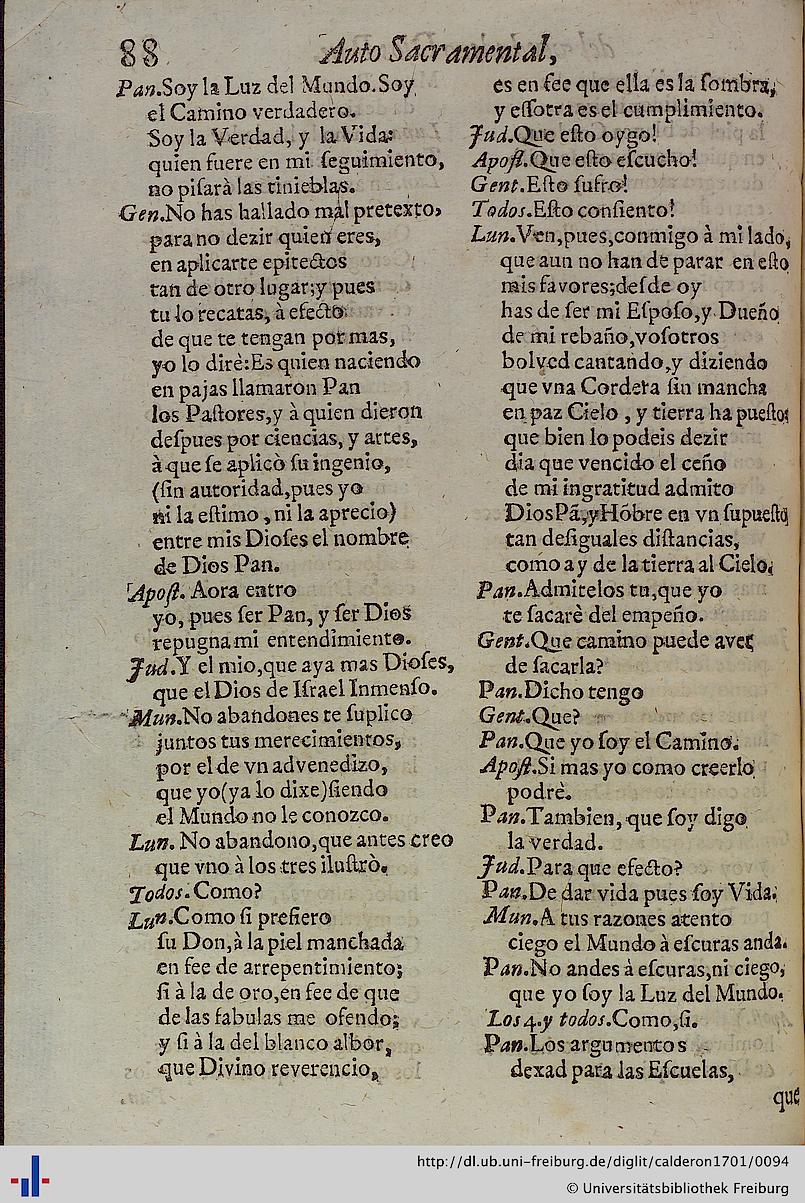 88
Auto Sacramental,
Pan.Soy la Luz del Mundo.Soy
el Camino verdadero.
Soy la Verdad, y la Vida:
quien fuere en mi ſeguimiento,
no piſarà las tinieblas.
Gen.No has hallado mal pretexto,
para no dezir quien eres,
en aplicarte epitectos
tan de otro lugar;y pues
tu lo recatas, à efecto
de que te tengan por mas,
yo lo dirè:Es quien naciendo
en pajas llamaron Pan
los Paſtores,y à quien dieron
deſpues por ciencias, y artes,
à que ſe aplicò ſu ingenio,
(ſin autoridad,pues yo
ni la eſtimo , ni la aprecio)
entre mis Dioſes el nombre
de Dios Pan.
Apoſt. Aora entro
yo, pues ſer Pan, y ſer Dios
repugna mi entendimiento.
Jud.Y el mio,que aya mas Dioſes,
que el Dios de Iſrael Inmenſo.
Mun.No abandones te ſuplico
juntos tus merecimientos,
por el de vn advenedizo,
que yo(ya lo dixe)ſiendo
el Mundo no le conozco.
Lun. No abandono,que antes creo
que vno à los tres iluſtrò.
Todos.Como?
Lun.Como ſi prefiero
ſu Don,à la piel manchada
en fee de arrepentimiento;
ſi à la de oro,en fee de que
de las fabulas me ofendo;
y ſi à la del blanco albor,
que Divino reverencio,
es en fee que ella es la ſombra,
y eſſotra es el cumplimiento.
Jud.Que eſto oygo!
Apoſt.Que eſto eſcucho!
Gent.Eſto ſufro!
Todos.Eſto conſiento!
Lun.Ven,pues,conmigo à mi lado,
que aun no han de parar en eſto
mis favores;deſde oy
has de ſer mi Eſpoſo,y Dueño
de mi rebaño,voſotros
bolved cantando,y diziendo
que vna Cordera ſin mancha
en paz Cielo , y tierra ha pueſto;
que bien lo podeis dezir
dia que vencido el ceño
de mi ingratitud admito
Dios Pã,y Hõbre en vn ſupueſto,
tan deſiguales diſtancias,
como ay de la tierra al Cielo.
Pan.Admitelos tu,que yo
te ſacarè del empeño.
Gent.Que camino puede aver
de ſacarla?
Pan.Dicho tengo
Gent.Que?
Pan.Que yo ſoy el Camino.
Apoſt.Si mas yo como creerlo
podrè.
Pan.Tambien, que ſoy digo
la verdad.
Jud.Para que efecto?
Pan.De dar vida pues ſoy Vida.
Mun.A tus razones atento
ciego el Mundo à eſcuras anda.
Pan.No andes à eſcuras,ni ciego,
que yo ſoy la Luz del Mundo.
Los 4.y todos.Como,ſi.
Pan.Los argumentos
dexad para las Eſcuelas,
que
http://dl.ub.uni-freiburg.de/diglit/calderon1701/0094
© Universitätsbibliothek Freiburg